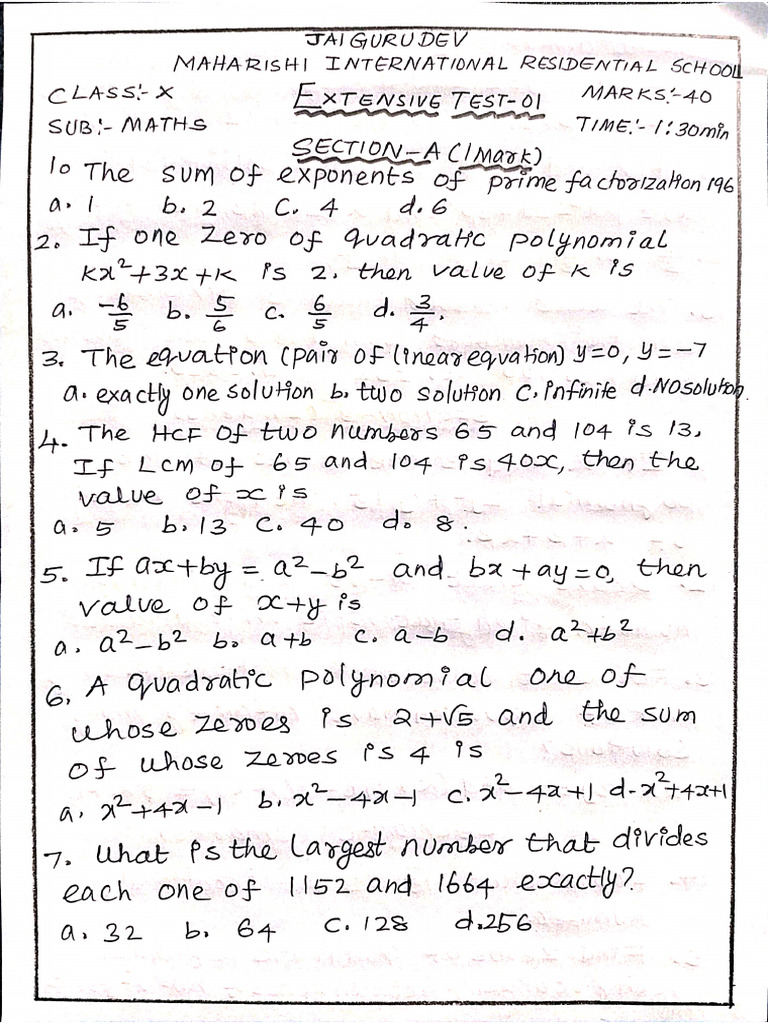 JAI GURU DEV
MAHARISHI INTERNATIONAL RESIDENTIAL SCHOOL
CLASS:- X EXTENSIVE TEST-01 MARKS:-40
SUB:- MATHS TIME:- 1:30min
SECTION-A (1 Mark)
1. The sum of exponents of prime factorization 196
a. 1 b. 2 c. 4 d. 6
2. If one zero of quadratic polynomial
kx²+3x+k is 2. then value of k is
a. -6/5 b. 5/6 c. 6/5 d. 3/4.
3. The equation (pair of linear equation) y=0, y=-7
a. exactly one solution b. two solution c. infinite d. No solution.
4. The HCF of two numbers 65 and 104 is 13.
If LCM of 65 and 104 is 40x, then the
value of x is
a. 5 b. 13 c. 40 d. 8.
5. If ax+by = a²-b² and bx+ay=0, then
value of x+y is
a. a²-b² b. a+b c. a-b d. a²+b²
6. A quadratic polynomial one of
whose zeroes is 2+√5 and the sum
of whose zeroes is 4 is
a. x²+4x-1 b. x²-4x-1 c. x²-4x+1 d. x²+4x+1
7. What is the largest number that divides
each one of 1152 and 1664 exactly?
a. 32 b. 64 c. 128 d. 256